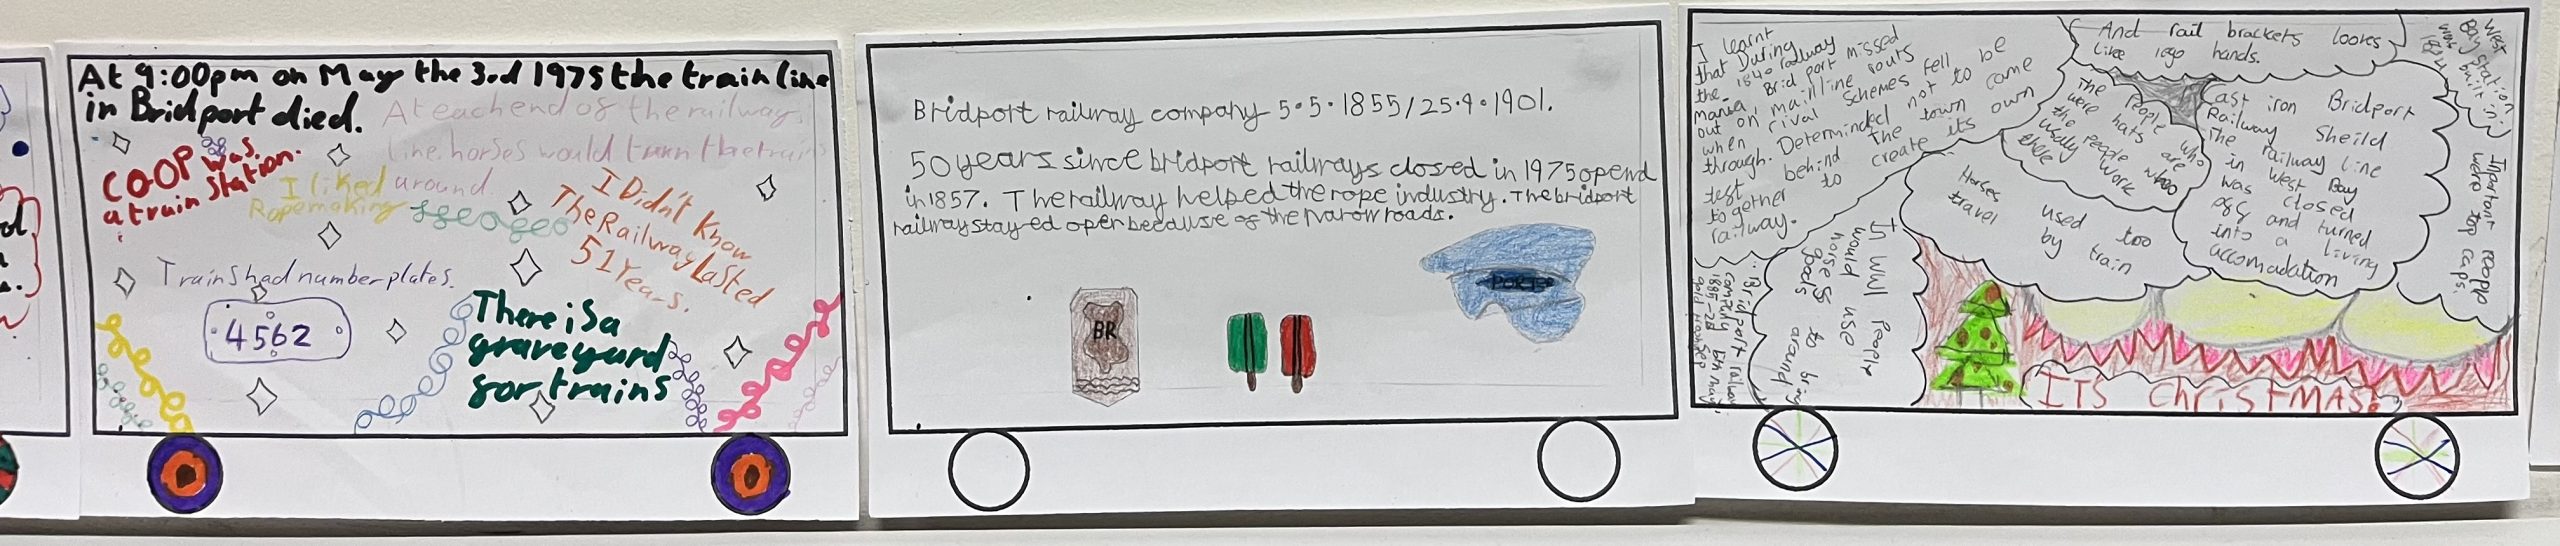 At 9:00pm on May the 3rd 1975 the train line
in Bridport died.
At each end of the railways
line horses would turn the trains
around.
COOP was
a train station.
I liked
Ropemaking
I Didn't Know
The Railway Lasted
51 Years.
Trains had number plates.
4562
There is a
graveyard
for trains
Bridport railway company 5.5.1855/25.9.1901.
50 years since bridport railways closed in 1975 opend
in 1857. The railway helped the rope industry. The bridport
railway stayed open because of the narow roads.
BR
PORTER
I learnt
that During
the 1840 railway
mania, Brid port missed
out on mainline routs
when rival schemes fell
through. Determinded not to be
left behind the town came
together to create its own
railway.
And rail brackets lookes
like lego hands.
West
Bay station
was built in
1884
The People who
were hats are
the people who
usually work
there
Cast iron Bridport
Railway Sheild
The railway line
in West Bay
was closed
off and turned
into a living
accomadation
Inportant people
were top caps.
Horses used too
travel by train
In WW1 People
would use
horse's to bring
goods around
Bridport railway
company 5th may
ITS ChriSTMAS